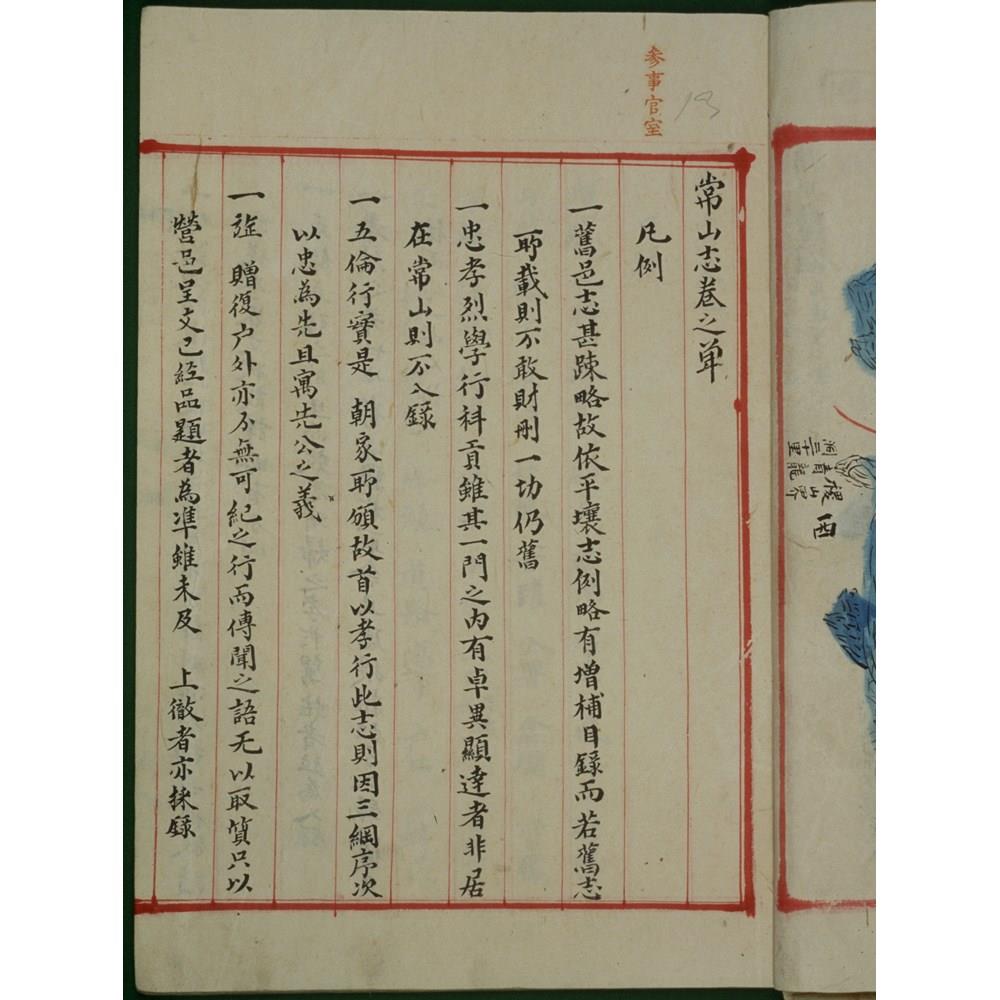 参事官室
13
常山志卷之單
凡例
一舊邑志甚踈略故依平壤志例略有增補目錄而若舊志
所載則不敢財刪一切仍舊
一忠孝烈學行科貢雖其一門之內有卓異顯達者非居
在常山則不入錄
一五倫行實是 朝家所頒故首以孝行此志則因三綱序次
以忠為先且寓先公之義
一旌 贈復户外亦不無可紀之行而傳聞之語无以取質只以
營邑呈文已經品題者為準雖未及 上徹者亦採錄
稷山界
青龍
洞三十里
酉